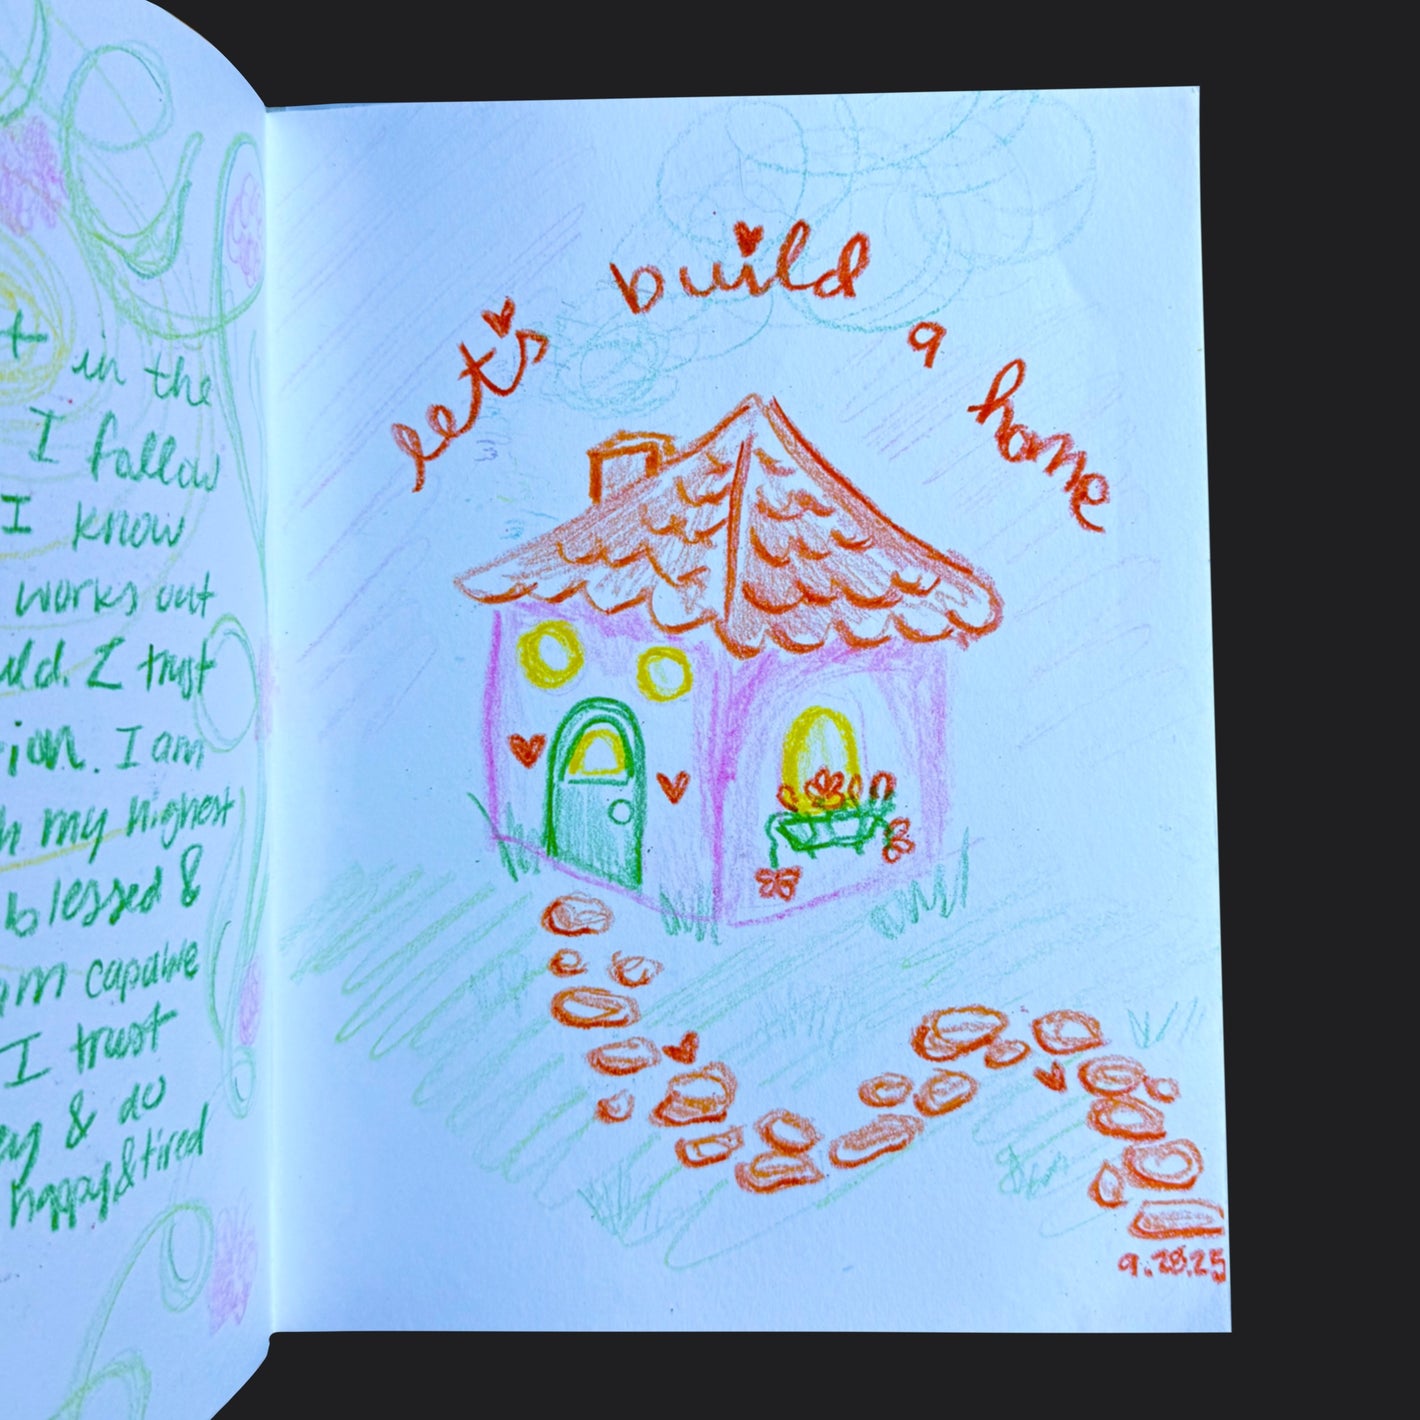 in the
I follow
I know
works out
I trust
I am
my highest
blessed &
am capable
I trust
& do
happy & tired
let's build a home
9.28.25